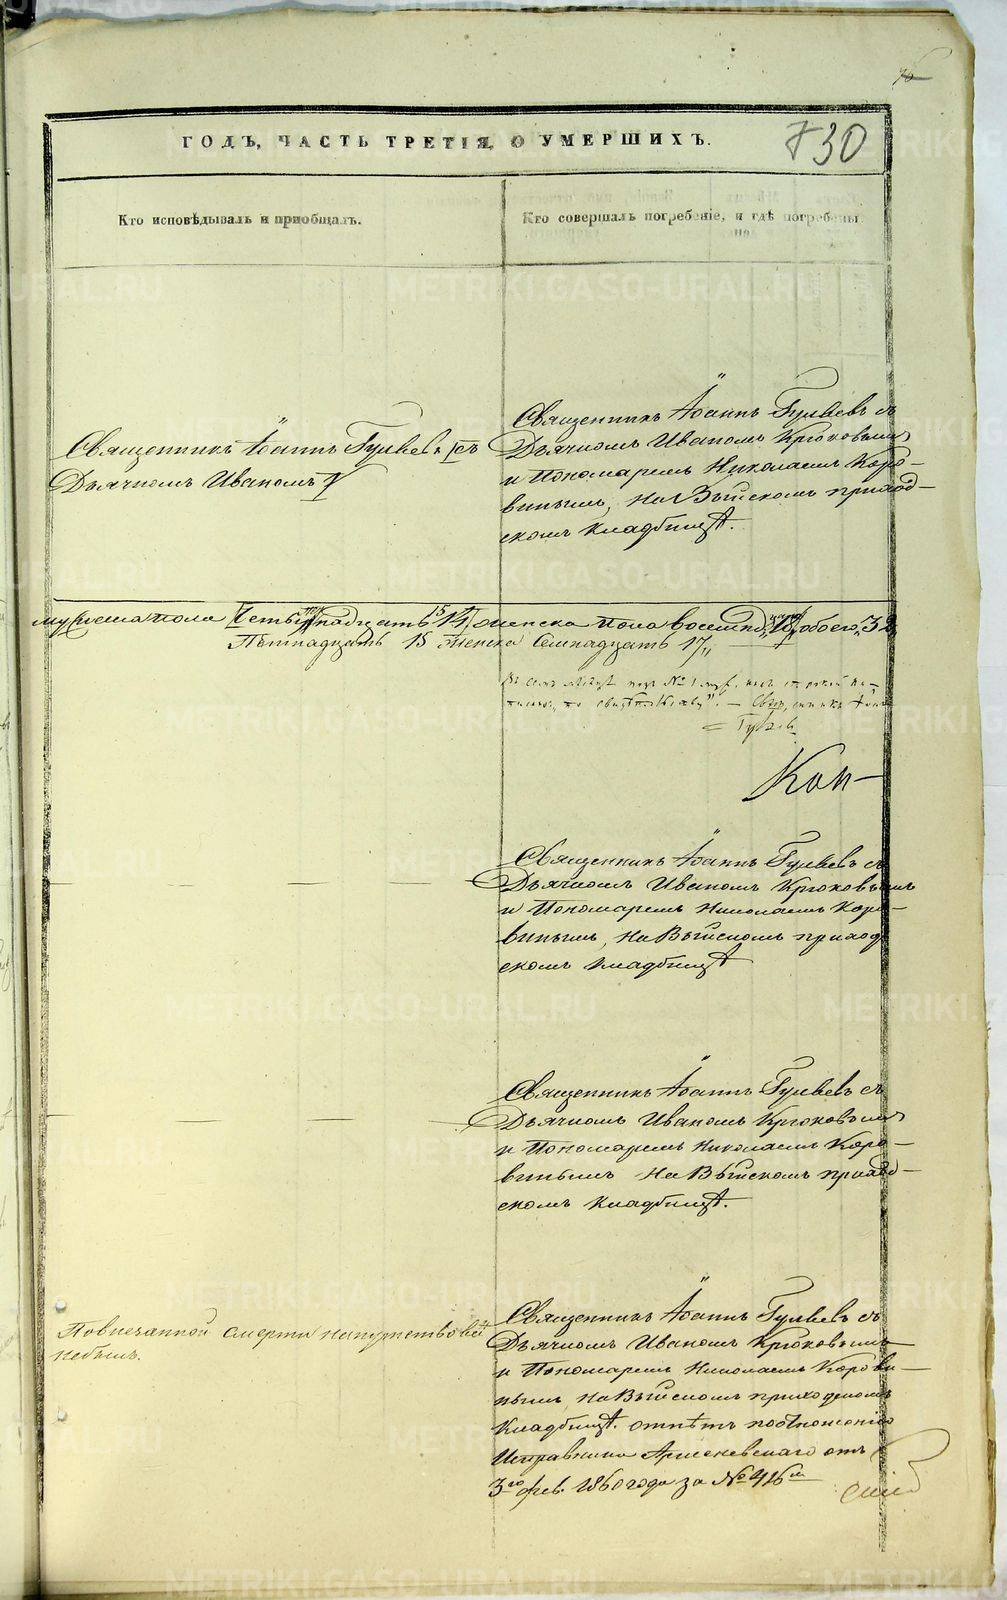 76
ГОДЪ, ЧАСТЬ ТРЕТІЯ, О УМЕРШИХЪ.
730
Кто исповѣдывалъ и пріобщалъ.
Кто совершалъ погребеніе, и гдѣ погребены.
Священникъ Іоаннъ Гуляевъ съ
Дьячкомъ Иваномъ
Священникъ Іоаннъ Гуляевъ съ
Дьячкомъ Иваномъ Крюковымъ
и Пономаремъ Николаемъ Коро-
винымъ, на Выйскомъ приход-
скомъ кладбищѣ.
мужеска пола 14 женска пола обоего 32
Пятнадцать 15 Женска Семнадцать 17
Гуляевъ
Кон-
Священникъ Іоаннъ Гуляевъ съ
Дьячкомъ Иваномъ Крюковымъ
и Пономаремъ Николаемъ Коро-
винымъ, на Выйскомъ приход
скомъ кладбищѣ
Священникъ Іоаннъ Гуляевъ съ
Дьячкомъ Иваномъ Крюковымъ
и Пономаремъ Николаемъ Коро-
винымъ на Выйскомъ приход-
скомъ кладбищѣ.
По внезапной смерти напутствованъ
небылъ.
Священникъ Іоаннъ Гуляевъ съ
Дьячкомъ Иваномъ Крюковымъ
и Пономаремъ Николаемъ Корови-
нымъ на Выйскомъ приходскомъ
кладбищѣ. отпѣтъ по отношенію
Исправника отъ
3го фев. 1860 года за № 416м
METRIKI.GASO-URAL.RU